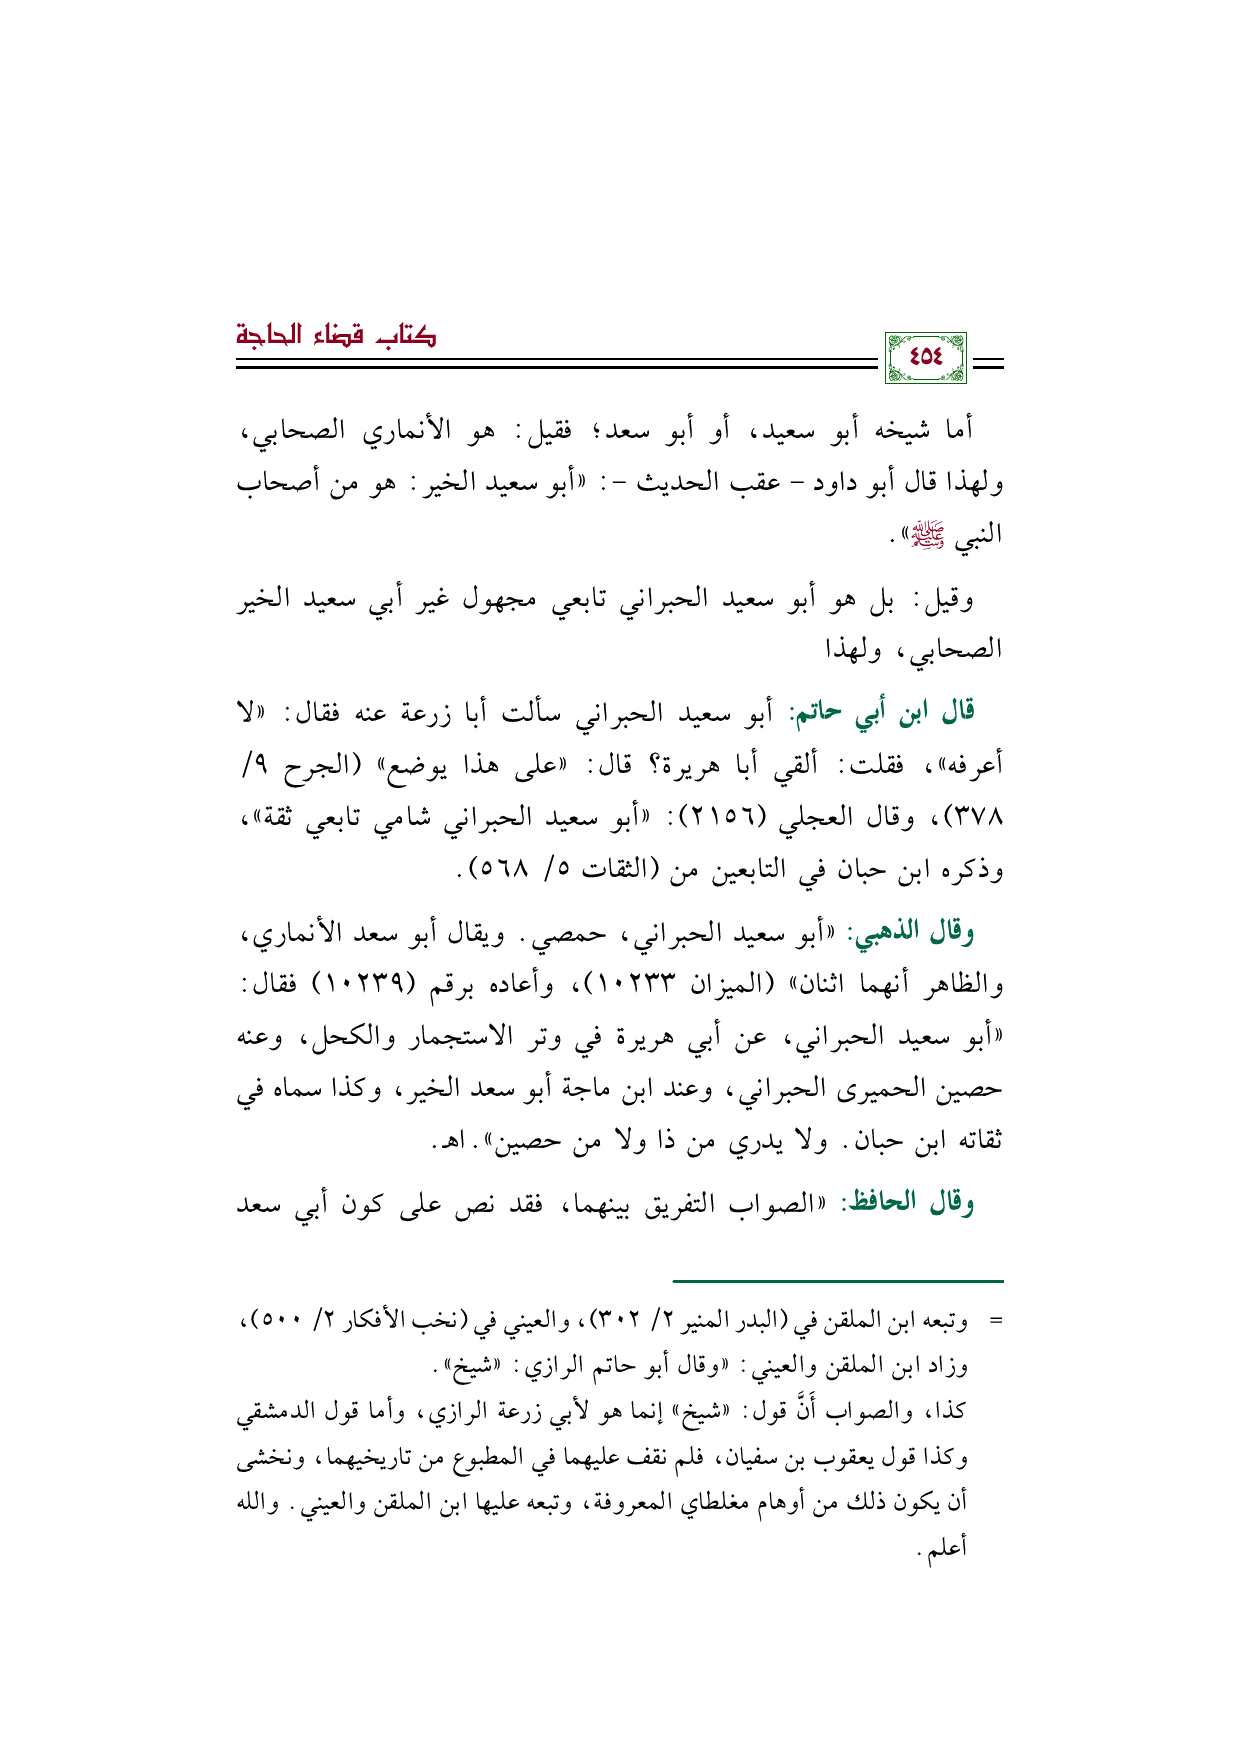 كتاب قضاء الحاجة
٤٥٤
أما شيخه أبو سعيد، أو أبو سعد؛ فقيل: هو الأنماري الصحابي،
ولهذا قال أبو داود - عقب الحديث -: «أبو سعيد الخير: هو من أصحاب
النبي ﷺ».
وقيل: بل هو أبو سعيد الحبراني تابعي مجهول غير أبي سعيد الخير
الصحابي، ولهذا
قال ابن أبي حاتم: أبو سعيد الحبراني سألت أبا زرعة عنه فقال: «لا
أعرفه»، فقلت: ألقي أبا هريرة؟ قال: «على هذا يوضع» (الجرح ٩/
٣٧٨)، وقال العجلي (٢١٥٦): «أبو سعيد الحبراني شامي تابعي ثقة»،
وذكره ابن حبان في التابعين من (الثقات ٥/ ٥٦٨).
وقال الذهبي: «أبو سعيد الحبراني، حمصي. ويقال أبو سعد الأنماري،
والظاهر أنهما اثنان» (الميزان ١٠٢٣٣)، وأعاده برقم (١٠٢٣٩) فقال:
«أبو سعيد الحبراني، عن أبي هريرة في وتر الاستجمار والكحل، وعنه
حصين الحميرى الحبراني، وعند ابن ماجة أبو سعد الخير، وكذا سماه في
ثقاته ابن حبان. ولا يدري من ذا ولا من حصين». اهـ.
وقال الحافظ: «الصواب التفريق بينهما، فقد نص على كون أبي سعد
= وتبعه ابن الملقن في (البدر المنير ٢/ ٣٠٢)، والعيني في (نخب الأفكار ٢/ ٥٠٠)،
وزاد ابن الملقن والعيني: «وقال أبو حاتم الرازي: «شيخ».
كذا، والصواب أَنَّ قول: «شيخ» إنما هو لأبي زرعة الرازي، وأما قول الدمشقي
وكذا قول يعقوب بن سفيان، فلم نقف عليهما في المطبوع من تاريخيهما، ونخشى
أن يكون ذلك من أوهام مغلطاي المعروفة، وتبعه عليها ابن الملقن والعيني. والله
أعلم.